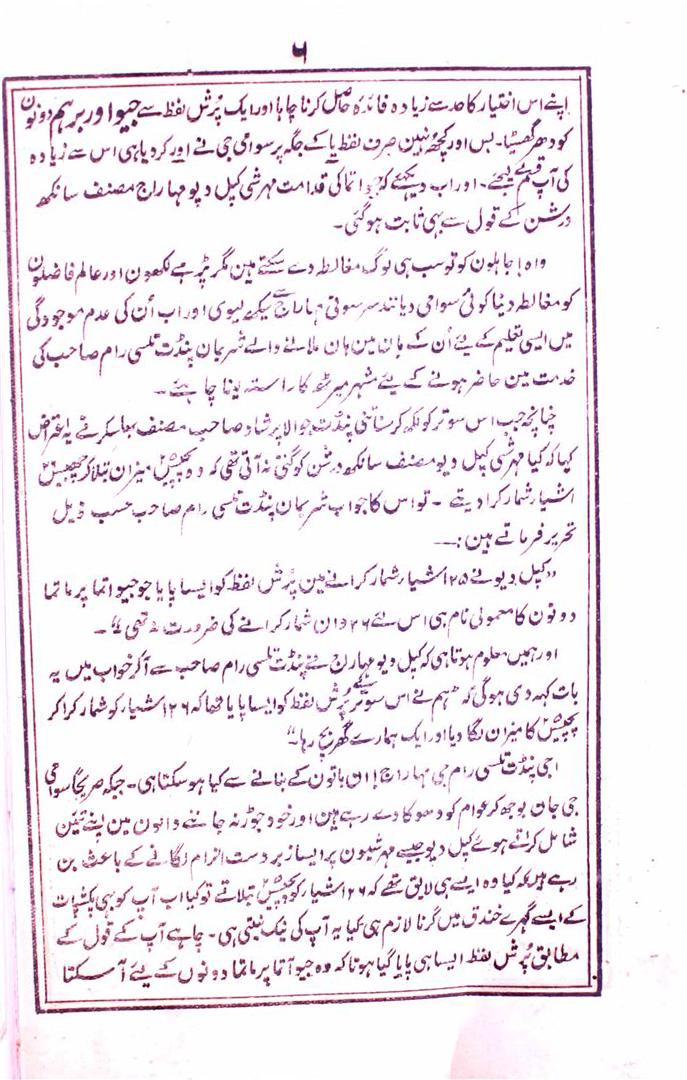 ۶
اپنے اس اختیار کا حد سے زیادہ فائدہ حاصل کرنا چاہا اور ایک پُرش لفظ سے جیو اور برہم دونون
کو دھر گھسیٹا۔ بس اور کچھ نہین صرف لفظ یا کے جگہ پر سوامی جی نے اور کر دیا ہی اس سے زیادہ
کی آپ قسم لیجئے۔ اور اب دیکھئے کہ جیو اتما کی قدامت مہرشی کپل دیو مہاراج مصنف سانکھ
درشن کے قول سے بہی ثابت ہو گئی۔
واہ! جاہلون کو تو سب ہی لوگ مغالطہ دے سکتے مین مگر پڑہے لکھون اور عالم فاضلون
کو مغالطہ دینا کوئی سوامی دیانند سرسوتی مہاراج سے سیکھ لیوی اور اب اُن کی عدم موجودگی
میں ایسی تعلیم کے لیے اُن کے ہان مین ہان ملانے والے شریمان پنڈت تلسی رام صاحب کی
خدمت مین حاضر ہونے کے لیئے شہر میرٹھ کا راستہ لینا چاہئے۔
چنانچہ جب اس سوتر کو لکھ کر سناتنی پنڈت جوالا پرشاد صاحب مصنف بھاسکر نے یہ اعتراض
کیا کہ کیا مہرشی کپل دیو مصنف سانکھ درشن کو گنتی نہ آتی تھی کہ وہ پچیس میزان بتلا کر چھبیس
اشیار شمار کرا دیتے۔ تو اس کا جواب شریمان پنڈت تلسی رام صاحب حسب ذیل
تحریر فرماتے ہین :—
”کپل دیو نے ۲۵ اشیار شمار کرانے مین پُرش لفظ کو ایسا پایا جو جیو اتما پرماتما
دونون کا معمولی نام ہی اس لئے ۲۶ وان شمار کرانے کی ضرورت نہ تھی“۔
اور ہمیں معلوم ہوتا ہی کہ کپل دیو مہاراج نے پنڈت تلسی رام صاحب سے آکر خواب میں یہ
بات کہہ دی ہوگی کہ ”ہم نے اس سوتر کے پُرش لفظ کو ایسا پایا تھا کہ ۲۶ اشیار کو شمار کرا کر
پچیس کا میزان لگا دیا اور ایک ہمارے گھر بچ رہا۔“
اجی پنڈت تلسی رام جی مہاراج! ان باتون کے بنانے سے کیا ہو سکتا ہی۔ جبکہ صریحاً سوامی
جی جان بوجھ کر عوام کو دھوکا دے رہے ہین اور خود جوڑ نہ جاننے والون مین اپنے تئین
شامل کراتے ہوئے کپل دیو جیسے مہرشیون پر ایسا زبردست الزام لگانے کے باعث بن
رہے ہین کہ کیا وہ ایسے ہی لایق تھے کہ ۲۶ اشیار کو پچیس بتلاتے تو کیا اب آپ کو بہی پکشپات
کے ایسے گہرے خندق میں گرنا لازم ہی کیا یہ آپ کی نیک نیتی ہی۔ چاہے آپ کے قول کے
مطابق پُرش لفظ ایسا ہی پایا گیا ہوتا کہ وہ جیو آتما پرماتما دونوں کے لیئے آ سکتا